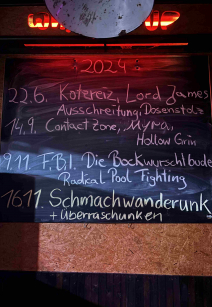 2024
22.6. Kotzreiz, Lord James
Ausschreitung, Dosenstolz
14.9. Contact Zone, Myra,
Hollow Grin
9.11. F.B.I. Die Bockwurschtbude
Radical Pool Fighting
16.11. Schmachwanderunk
+ Überraschunken